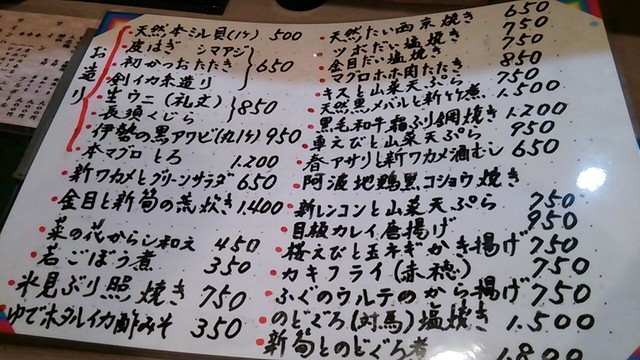 お造り
天然本ミル貝(1ヶ) 500
皮はぎ シマアジ
初かつおたたき
剣イカ糸造り
650
生ウニ(礼文)
長須くじら
850
伊勢の黒アワビ(丸1ヶ) 950
本マグロ とろ 1.200
新ワカメとグリーンサラダ 650
金目と新筍の煮炊き 1.400
菜の花からし和え 450
若ごぼう煮 350
氷見ぶり照焼き 750
ゆでホタルイカ酢みそ 350
天然だい西京焼き 650
ツボだい塩焼き 750
金目だい塩焼き 750
マグロホホ肉たたき 850
キスと山菜天ぷら 750
天然黒メバルと新竹煮 1.500
黒毛和牛霜ふり網焼き 1.200
車えびと山菜天ぷら 950
春アサリと新ワカメ酒むし 650
阿波地鶏黒コショウ焼き
新レンコンと山菜天ぷら 750
目板カレイ唐揚げ 950
桜えびと玉ネギかき揚げ 750
カキフライ(赤穂) 750
ふぐのウルテのから揚げ 750
のどぐろ(対馬)塩焼き 1.500
新旬とのどぐろ煮 1800